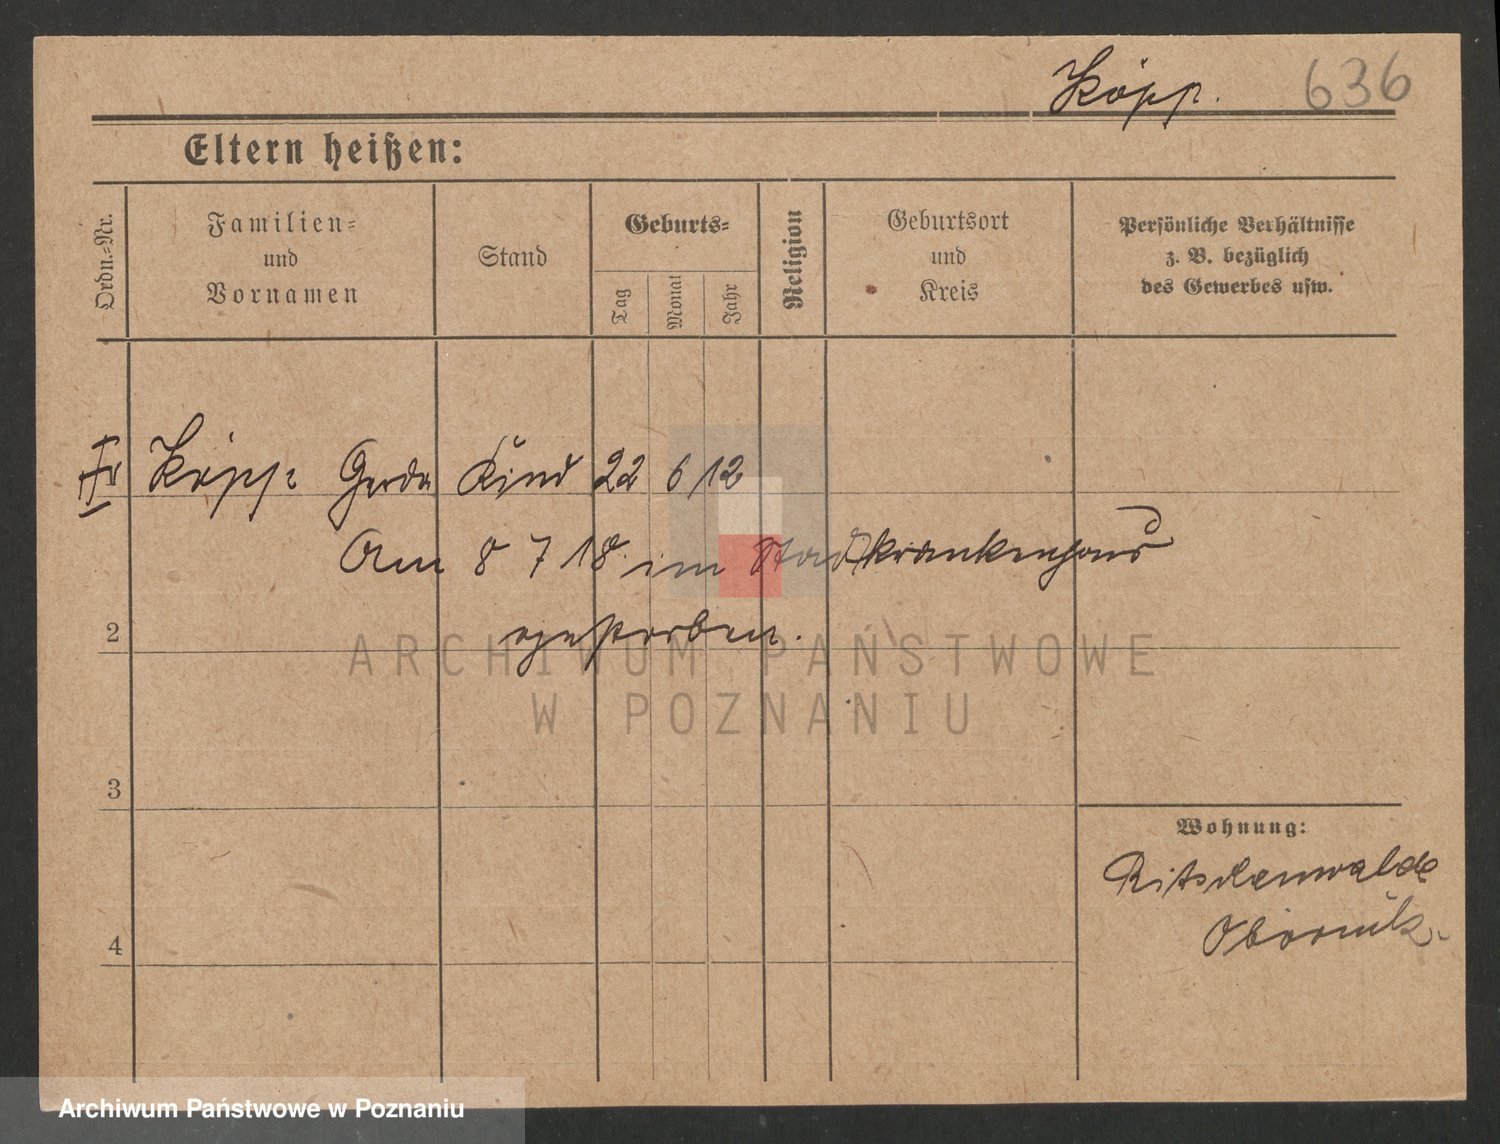 Köpp. 636
Eltern heißen:
Ordn.-Nr.
Familien-
und
Vornamen
Stand
Geburts-
Tag
Monat
Jahr
Religion
Geburtsort
und
Kreis
Persönliche Verhältnisse
z. B. bezüglich
des Gewerbes usw.
Köpp Gerda Kind 22 6 12
Am 8 7 18 im Stadtkrankenhaus
2 gestorben.
3
4
Wohnung:
Ritschenwalde
Obornik
ARCHIWUM PAŃSTWOWE
W POZNANIU
Archiwum Państwowe w Poznaniu